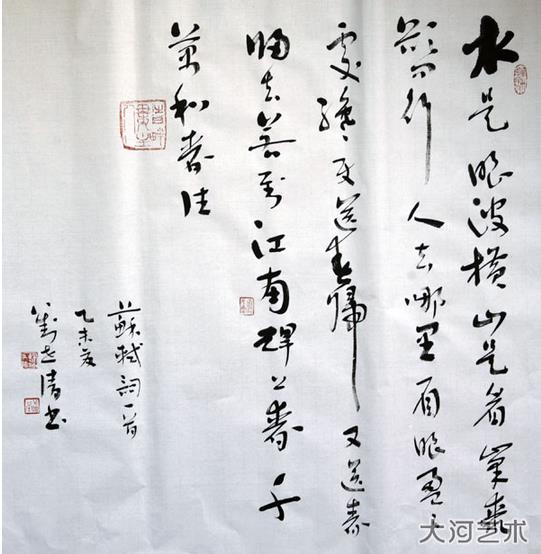 水是眼波横山是眉峯聚
欲问行人去哪里眉眼盈盈
處纔始送春歸又送春
归去若到江南赶上春千
万和春住
蘇軾詞一首
乙未夏
清书
大河艺术